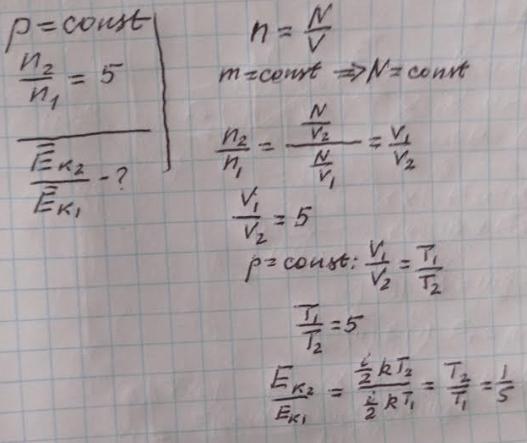 p = const
n₂/n₁ = 5
Ē_K₂/Ē_K₁ - ?
n = N/V
m = const ⇒ N = const
n₂/n₁ = (N/V₂)/(N/V₁) = V₁/V₂
V₁/V₂ = 5
p = const: V₁/V₂ = T₁/T₂
T₁/T₂ = 5
E_K₂/E_K₁ = (i/2 kT₂)/(i/2 kT₁) = T₂/T₁ = 1/5